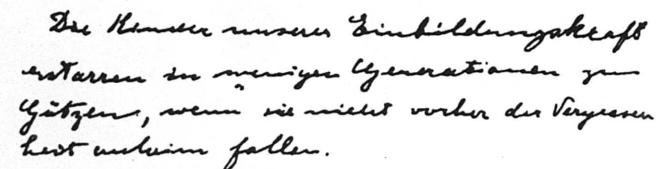 Die Kinder unserer Einbildungskraft
erstarren in wenigen Generationen zu
Götzen, wenn sie nicht vorher der Vergessen
heit anheim fallen.